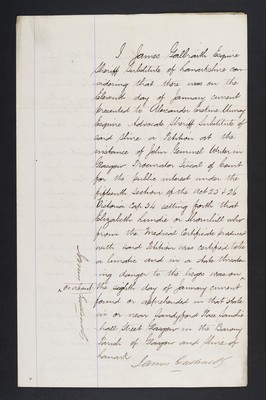 I James Galbraith Esquire
Sheriff Substitute of Lanarkshire con
sidering that there was on the
eleventh day of January current
presented to Alexander Erskine Murray
Esquire Advocate Sheriff Substitute of
said Shire a Petition at the
instance of John Gemmel Writer in
Glasgow Procurator Fiscal of Court
for the public interest under the
fifteenth Section of the Act 25 & 26
Victoria Cap. 54 setting forth that
Elizabeth Lundie or Thornhill who
from the Medical Certificate produced
with said Petition was certified to be
a lunatic and in a state threaten
ing danger to the lieges was on
the eighth day of January current
found or apprehended in that state
in or near Sandyford Place Sauchie
hall Street Glasgow in the Barony
Parish of Glasgow and Shire of
Lanark
James Galbraith